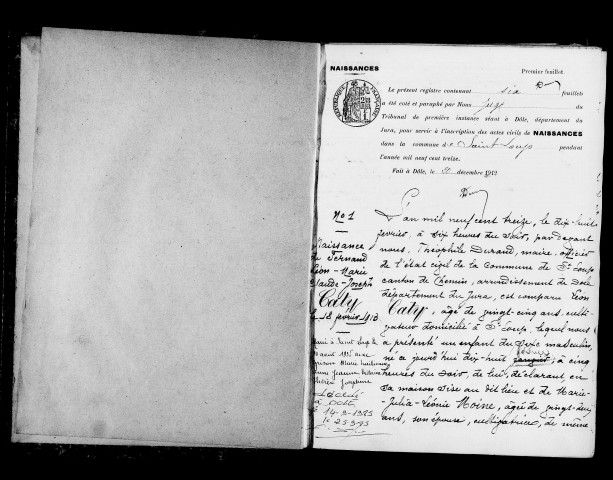 NAISSANCES
Premier feuillet
Le présent registre contenant six feuillets
a été coté et paraphé par Nous juge du
Tribunal de première instance séant à Dôle, département du
Jura, pour servir à l'inscription des actes civils de NAISSANCES
dans la commune de Saint Loup pendant
l'année mil neuf cent treize.
Fait à Dôle, le 20 décembre 1912
RÉPUBLIQUE FRANÇAISE
No 1
Naissance
de Fernand
Léon-Marie
Claude-Joseph
Caty
le 18 février 1913
Marié à Saint Loup le
août 1935 avec
Marie
Jeanne
Joséphine
Décédé
à DOLE
14-3-1985
le 25 3 95
L'an mil neuf cent treize, le dix-huit
février à six heures du soir, par devant
nous, Théophile Durand, maire, officier
de l'état civil de la commune de St Loup
canton de Chemin, arrondissement de Dole
département du Jura, est comparu Léon
Caty, âgé de vingt-cinq ans, culti-
vateur domicilié à St Loup, lequel nous
a présenté un enfant du sexe masculin,
né aujourd'hui dix-huit février, à cinq
heures du soir, de lui, déclarant, en
sa maison sise au dit lieu et de Marie-
Julia-Léonie Moine, âgée de vingt-
ans, son épouse, cultivatrice, de même